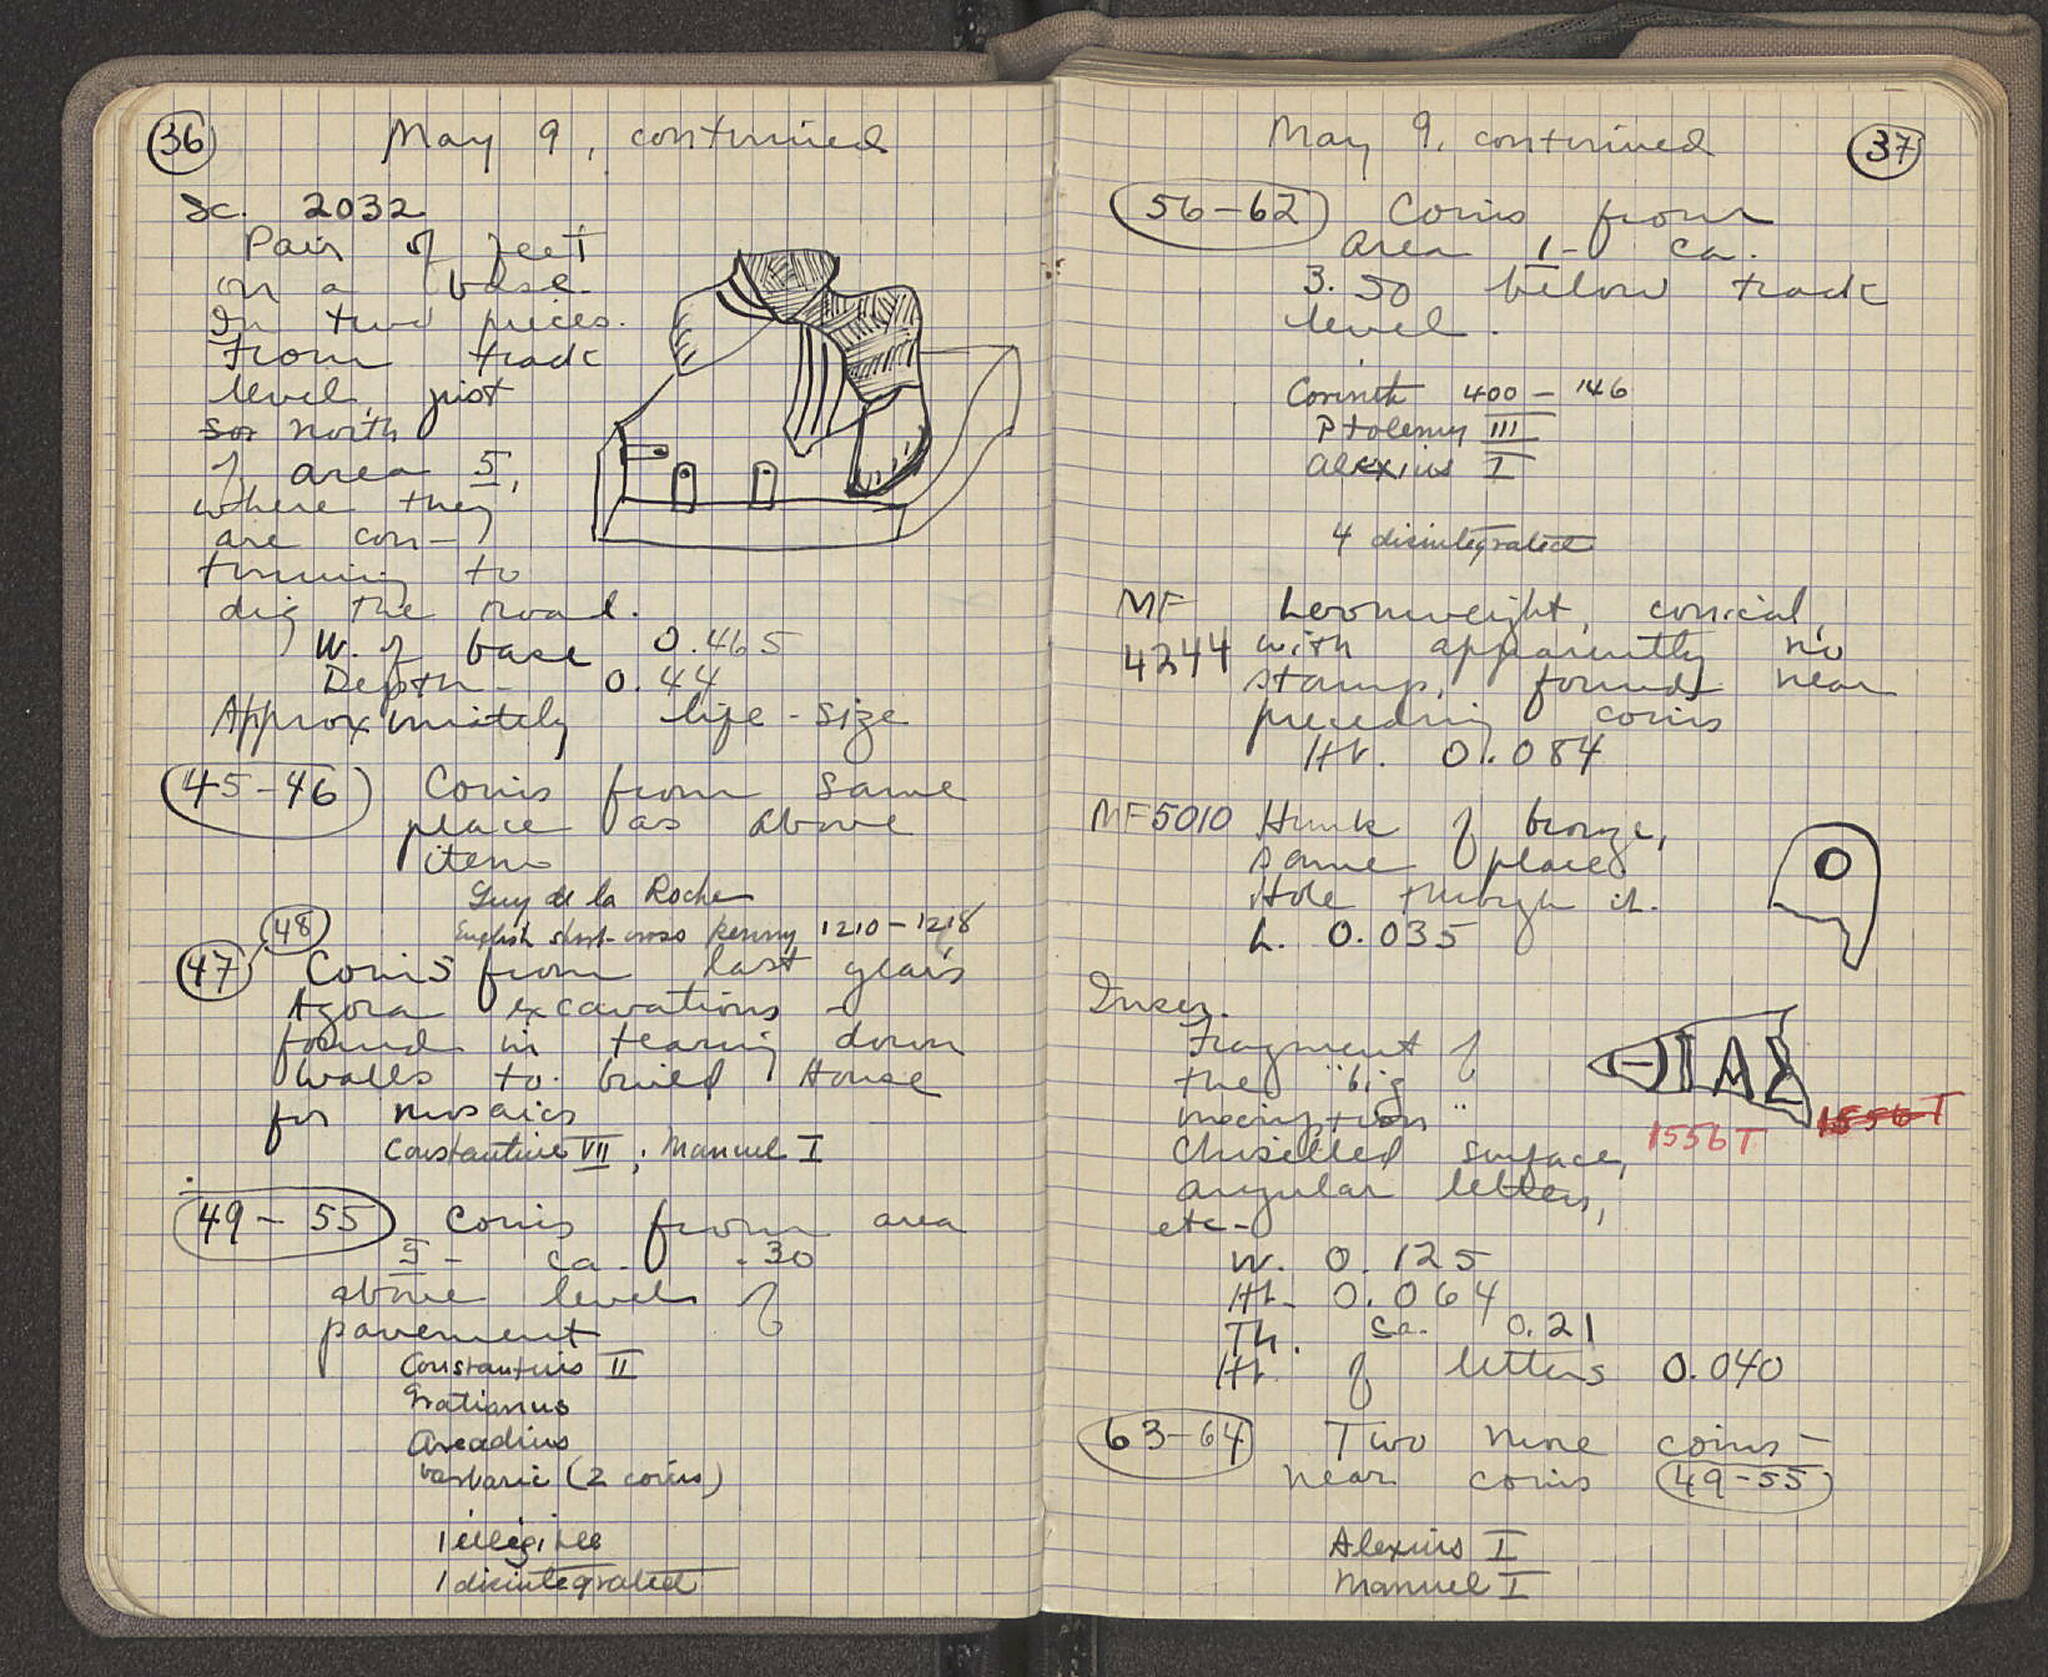 36
May 9, continued
Sc. 2032
Pair of feet
on a base.
In two pieces.
From track
level, just
sou north
of area 5,
where they
are con-
tinuing to
dig the road.
W. of base 0.465
Depth - 0.44
Approximately life-size
45-46 Coins from same
place as above
item
Guy de la Roche
English short-cross penny 1210-1218
48
47 Coins from last year's
Agora excavations -
found in tearing down
walls to build House
for mosaics
Constantine VII ; Manuel I
49-55 Coins from area
5 - ca. .30
above level of
pavement
Constantius II
Gratianus
Arcadius
barbaric (2 coins)
1 illegible
1 disintegrated
May 9, continued
37
56-62 Coins from
area 1 - ca.
3.50 below track
level.
Corinth 400-146
Ptolemy III
Alexius I
4 disintegrated
MF Loomweight, conical,
4244 with apparently no
stamp, found near
preceding coins
Ht. 0.084
MF5010 Hunk of bronze,
same place
Hole through it.
L. 0.035
Inscr.
Fragment of
the "big
inscription"
ΘΙΑΣ
1556T 1556T
Chiselled surface,
angular letters,
etc -
W. 0.125
Ht. 0.064
Th. ca. 0.21
Ht. of letters 0.040
63-64 Two more coins -
near coins 49-55
Alexius I
Manuel I